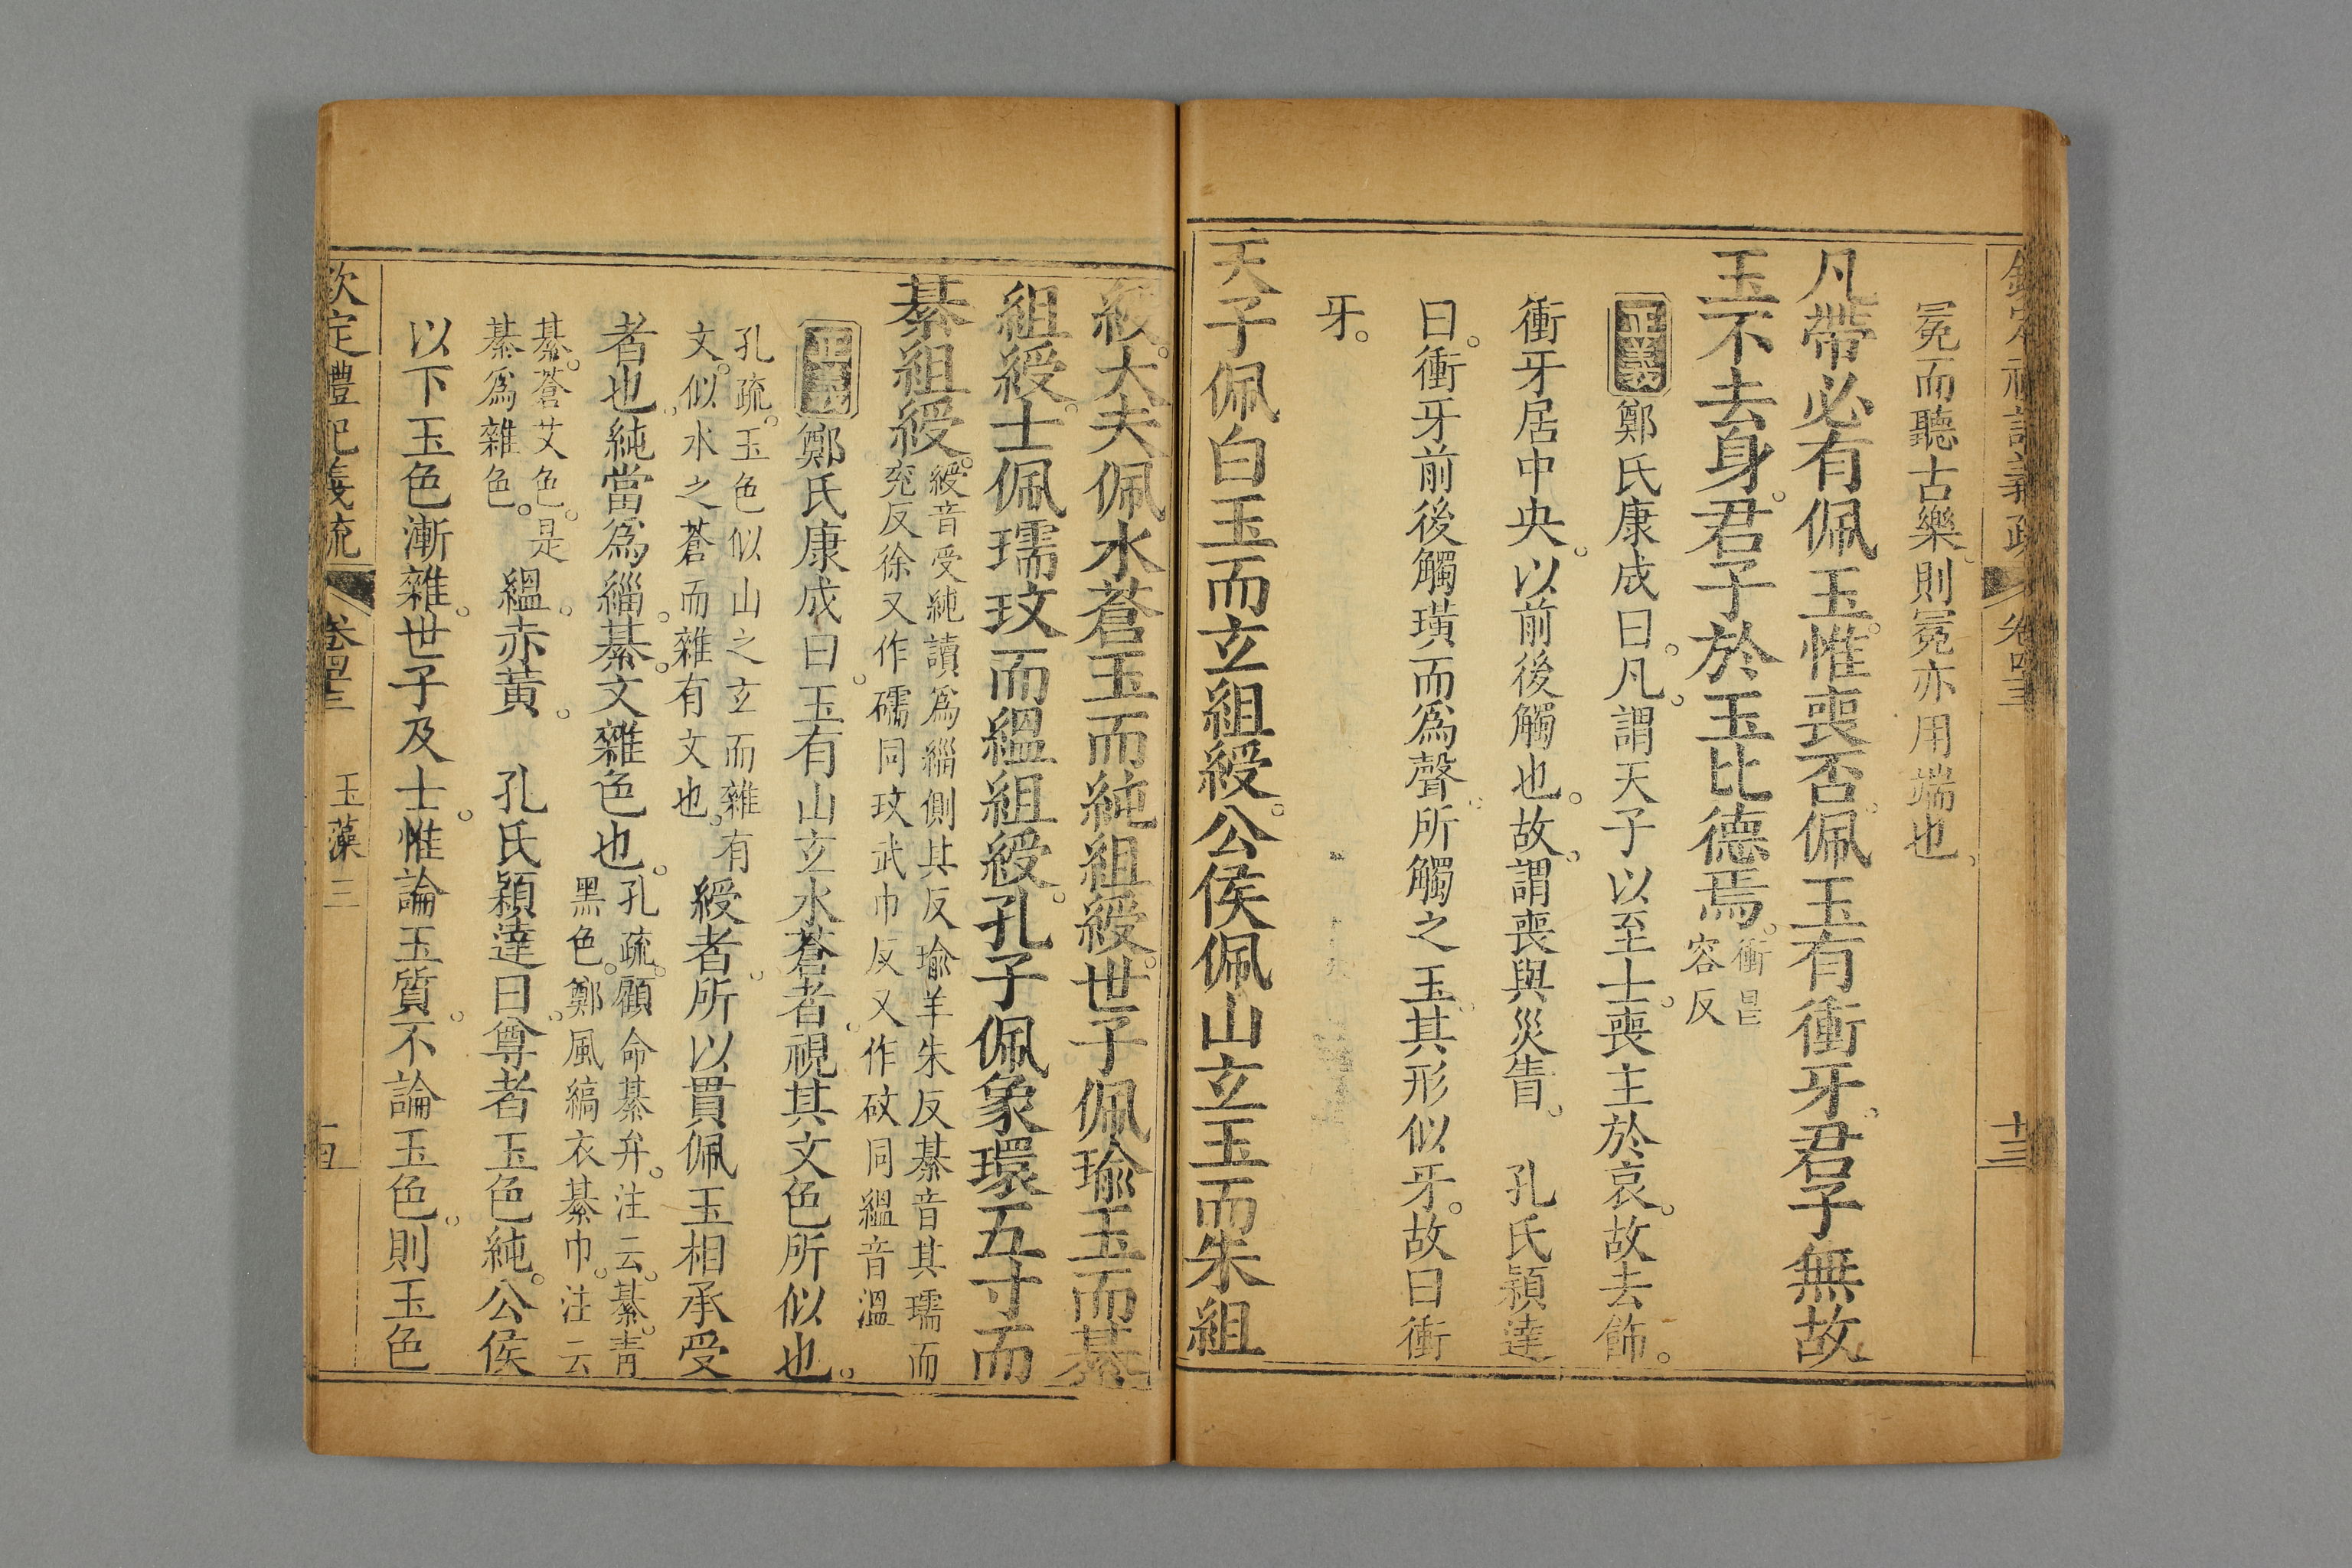 欽定禮記義疏 卷四十三 十三
冕而聽古樂則冕亦用端也
凡帶必有佩玉惟喪否佩玉有衝牙君子無故
玉不去身君子於玉比德焉衝昌
容反
正義鄭氏康成曰凡謂天子以至士喪主於哀故去飾
衝牙居中央以前後觸也故謂喪與災眚 孔氏穎達
曰衝牙前後觸璜而爲聲所觸之玉其形似牙故曰衝
牙
天子佩白玉而玄組綬公侯佩山玄玉而朱組
綬大夫佩水蒼玉而純組綬世子佩瑜玉而綦
組綬士佩瓀玟而縕組綬孔子佩象環五寸而
綦組綬綬音受純讀爲緇側其反瑜羊朱反綦音其瓀而
兖反徐又作礝同玟武巾反又作砇同縕音溫
正義鄭氏康成曰玉有山玄水蒼者視其文色所似也
孔疏玉色似山之玄而雜有
文似水之蒼而雜有文也綬者所以貫佩玉相承受
者也純當爲緇綦文雜色也孔疏顧命綦弁注云綦靑
黑色鄭風縞衣綦巾注云
綦蒼艾色是
綦爲雜色縕赤黃 孔氏穎達曰尊者玉色純公侯
以下玉色漸雜世子及士惟論玉質不論玉色則玉色
欽定禮記義疏 卷四十三 玉藻 三 五